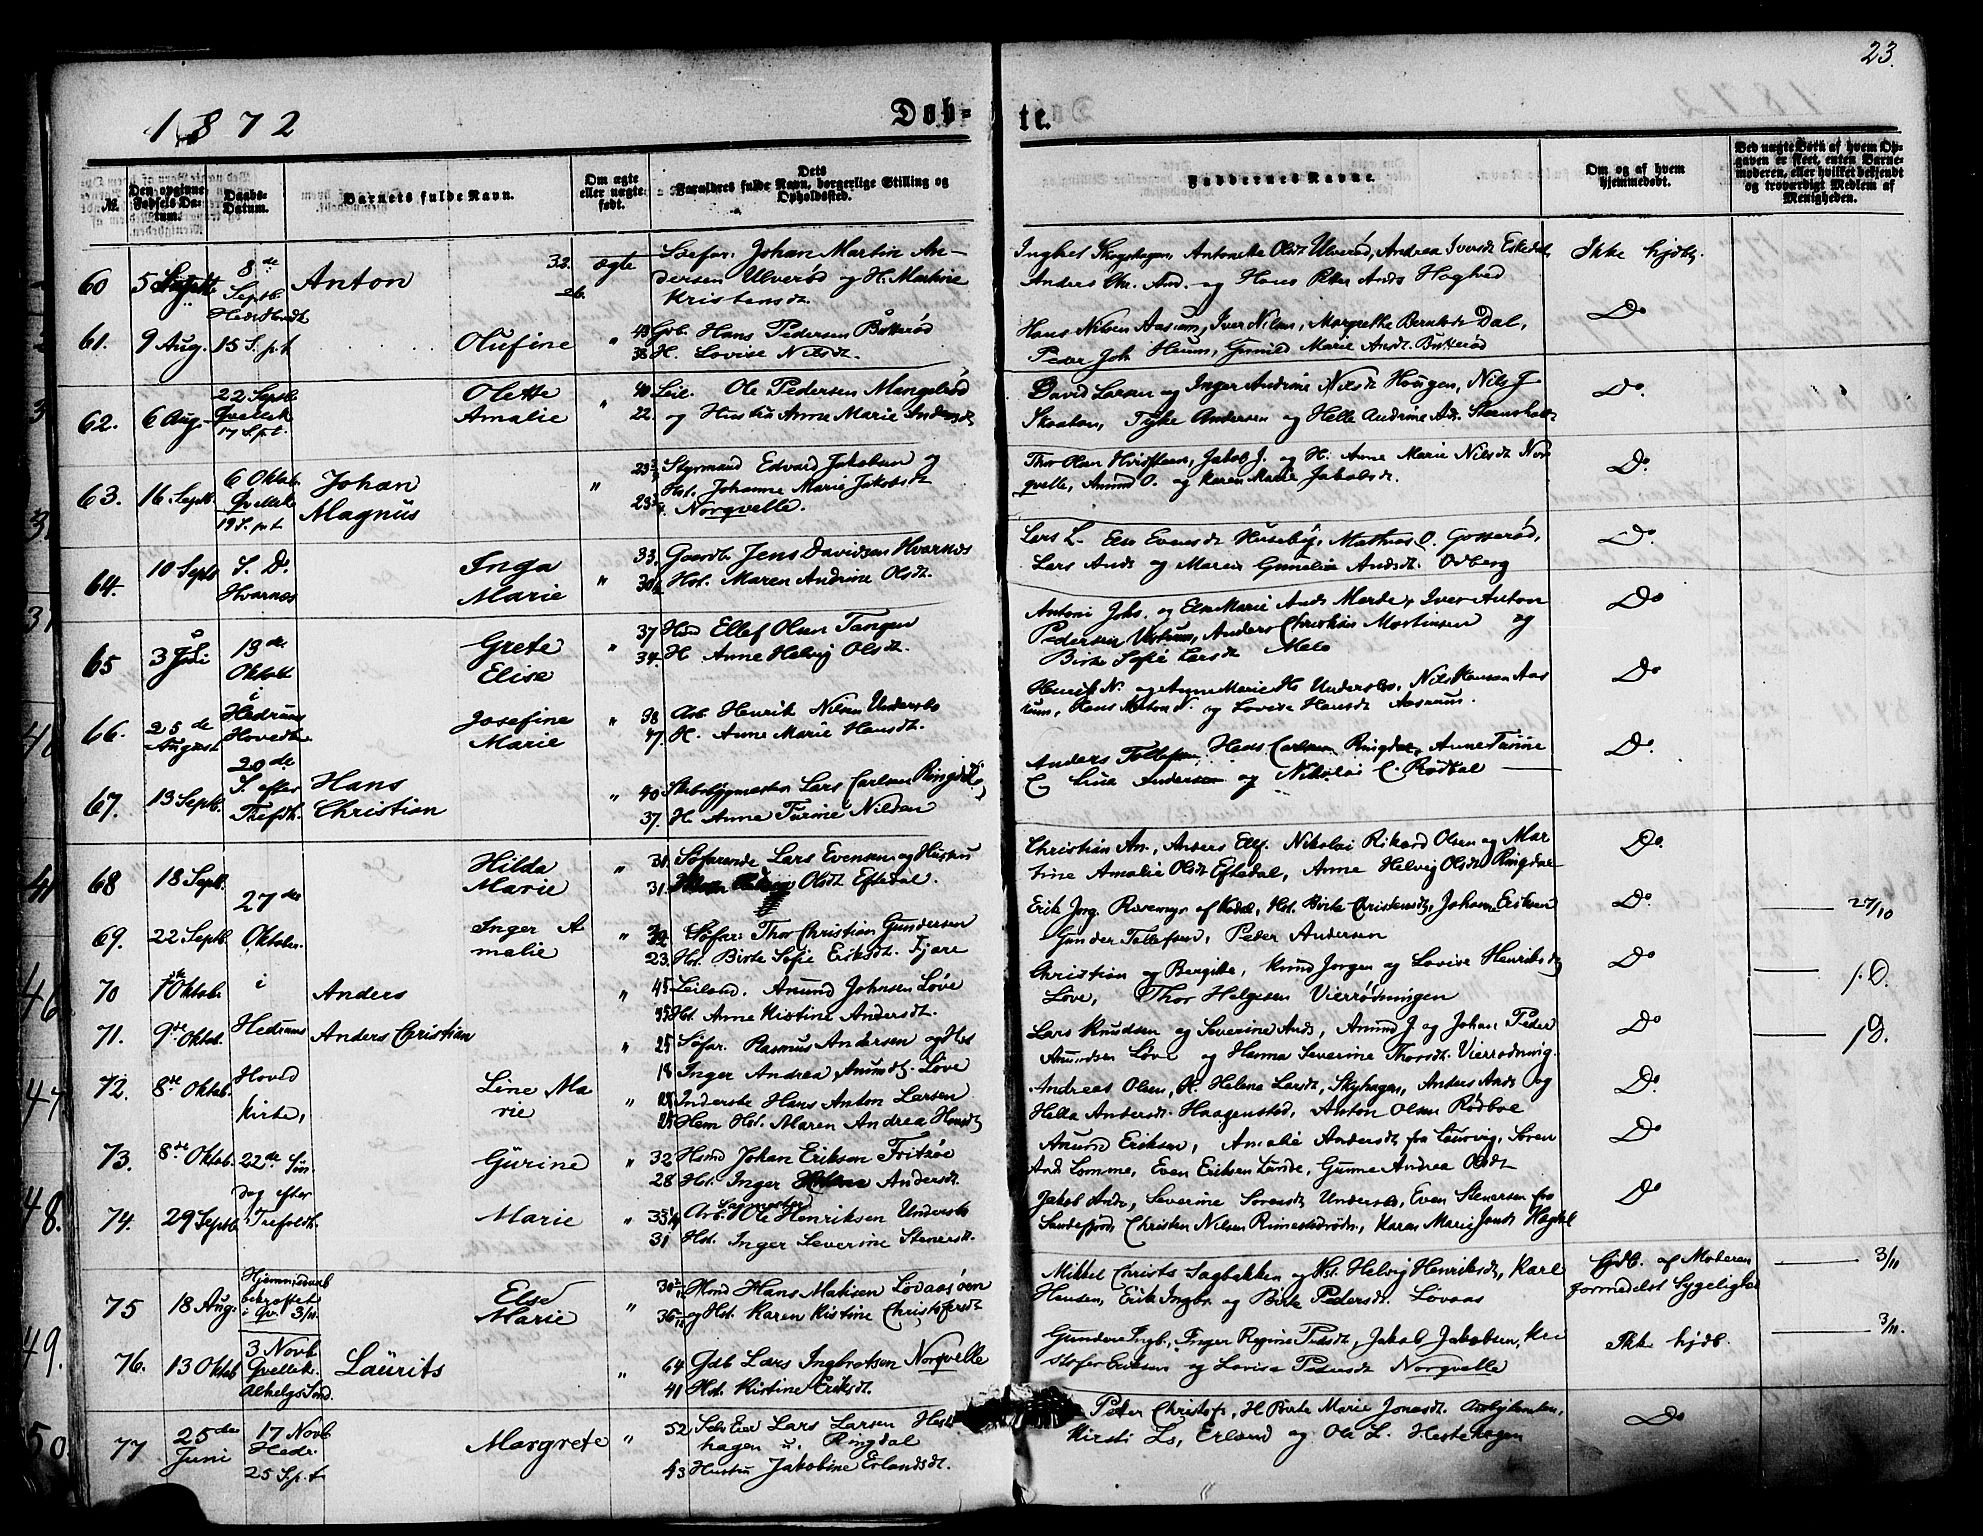 23.
1872
Døb-
te.
№
Den opgivne Fødsels Datum.
Daabs-Datum.
Barnets fulde Navn.
Om ægte eller uægte født.
Dets Forældres fulde Navn, borgerlige Stilling og Opholdssted.
Faddernes Navne.
Om og af hvem hjemmedøbt.
Ved uægte Børn af hvem Opgaven er skeet, enten Barnemoderen, eller hvilket bekjendt og troværdigt Medlem af Menigheden.
60 5 8de Septb. Anton 32. 26. ægte
Søefar. Johan Martin An-
dersen Ulverød og H. Martine
Kristensdt.
Inghel Skogshagen, Antonette Olsdt Ulverød, Andrea Iversdt Eskedal,
Anders Chr. And. og Hans Peter Ands Haghed
Ikke hjdbt.
61. 9 Aug. 15 S. p. t. Olufine " 43 38
Gbr. Hans Pedersen Bøtterød
H. Lovise Nilsdt.
Hans Nilsen Aasrum, Iver Nilsen, Margrethe Berntsdt Dal,
Peder Joh. Heum, Gunild Marie Ansdt. Bøtterød
Do
62. 6 Aug. 22 Septb. Qvelle k. 17 S. p. t. Olette Amalie " 40 22.
Leil. Ole Pedersen Mangelrød
og Hustru Anne Marie Andersdt
David Larsen og Inger Andrine Nilsdt Haugen, Nils J.
Skaatan, Tyke Andersen og Helle Andrine Ads. Stenshalt
Do.
63. 16. Septb. 6 Oktob. Qvelle k. 19 S. p. t Johan Magnus " 23 23
Styrmand Edvard Jakobsen og
Hst. Johanne Marie Jakobsdt
Norqvelle.
Thor Olsen Hvidsteen, Jakob J. og H. Anne Marie Nilsdt Nor
qvelle, Amund O. og Karen Marie Jakobsdt.
Do.
64. 10 Septb S. D. Hvarnæs Inga Marie " 33. 30
Gaardb. Jens Davidsen Hvarnæs
Hst. Maren Andrine Olsdt.
Lars L. Else Evensdt Huseby, Mathias O. Gosserød,
Lars Ands og Maren Gunelia Andsdt. Odberg
Do.
65 3 Juli 13de Oktob i Hedrums Hovedk. Grete Elise " 37 34.
Hsmd Ellef Olsen Tangen
H Anne Helvig Olsdt.
Antoni Johs. og Else Marie Ands Merde, Iver Anton
Pedersen Vestrum, Anders Christian Mortinsen og
Birte Sofie Larsdt Melo
Do
66. 25de August Josefine Marie " 38 47.
Arb. Henrik Nilsen Undersbo
H. Anne Marie Hansdt.
Henrik N. og Anne Marie H. Undersbo, Nils Hansen Aas
rum, Hans Anton N. og Lovise Hansdt Aasrum.
Do
67. 13 Septb. 20de S. efter Trefdt. Hans Christian " 40 37.
Skibsbygmester Lars Carlsen Ringdal,
H. Anne Turine Nilsen
Anders Tollefsen, Hans Carlsen Ringdal, Anne Turine
C. Lina Andersen og Nikolai C. Rødbøl
Do.
68 18 Septb. 27de Oktober i Hedrums Hovedkirke, Hilda Marie " 30. 31.
Søfarende Lars Evensen og Hustru
Olsdt Eftedal.
Christian An., Anders Ellef. Nikolai Rikard Olsen og Mar
tine Amalie Olsdt Eftedal, Anne Helvig Olsdt Ringdal
Do.
69. 22 Septb. Inger Amalie " 23.
Søfar: Thor Christian Gundersen
Hst. Birte Sofie Eriksdt. Fjære
Erik Jørg. Rosemyr af Kodal, Hst. Birte Christensdt, Johanne Eriksen
Gunder Tollefsen, Peder Andersen
Do 27/10
70 7de Oktob. Anders " 45
Leilend. Amund Johnsen Løve
Hst. Anne Kistine Andersdt.
Christian og Bergitte, Knud Jørgen og Lovise Henriksdt
Løve, Thor Helgesen Vierrødningen
Do
71. 9de Oktob. Anders Christian " 25 18
Søfar. Rasmus Andersen og Hst
Inger Andrea Amundt. Løve
Lars Knudsen og Severine Ands, Amund J. og Johan Peder
Amundsen Løve og Hanna Severine Thorsdt. Vierrødning.
Do
72. 8de Oktob. Line Marie "
Inderste Hans Anton Larsen
Hem Hst. Maren Andrea Hansdt
Andreas Olsen, H. Helene Larsdt, Skyhagen, Anders Ands og
Helta Andersdt. Haagenstad, Anton Olsen Rødbøl
Do
73. 8de Oktob. 22de Søndag efter Trefoldt. Gurine " 32 28
Hsmd Johan Eriksen Fritzøe
Hst. Inger Andersdt.
Amund Eriksen, Amalie Andersdt fra Laurvig, Søren
Ands Lomme, Even Eriksen Lunde, Gunne Andrea Olsdt
Do
74. 29 Septb Marie " 33 31
Arb. Ole Henriksen Undersbo
Hst. Inger Severine Stenersdt.
Jakob Ands, Severine Sørensdt Undersbo, Even Stenersen fra
Sandefjord, Christen Nilsen Rimestadrødn, Karen Marie Jansdt Hagtel
Do
75 18 Aug. Hjemmedaab bekræftet i Qv. 3/11. Else Marie " 30 36
Hsmd Hans Matisen Lovaasøen
og Hst. Karen Kistine Christofersdt
Mikkel Christs Sagbakken og Hst. Helvig Henriksdt, Karl
Hansen, Erik Ingbr. og Birte Pedersdt. Lovaas
hjdb. af Moderen
formedelst Sygelighed
3/11
76. 13 Oktob 3 Novb Qvelle k. Alhelgs Sønd. Laurits " 64 41
Gdb Lars Ingbretsen Norqvelle
Hst. Kistine Eriksdt.
Gunder Ingb., Inger Regine Pedsdt, Jakob Jakobsen, Kri
stofer Eriksen og Lovise Pedersdt Norqvelle
Ikke hjdb.
3/11.
77 25de Juni 17 Novb Hedr. 25 S. p. t Margrete " 52 43
Selv Eier Lars Larsen Heste
hagen u. Ringdal
Hustru Jakobine Erlandsdt.
Peter Christofs, H Birte Marie Jonasdt.
Kirsti Ls, Erland og Ole L. Hestehagen
Do